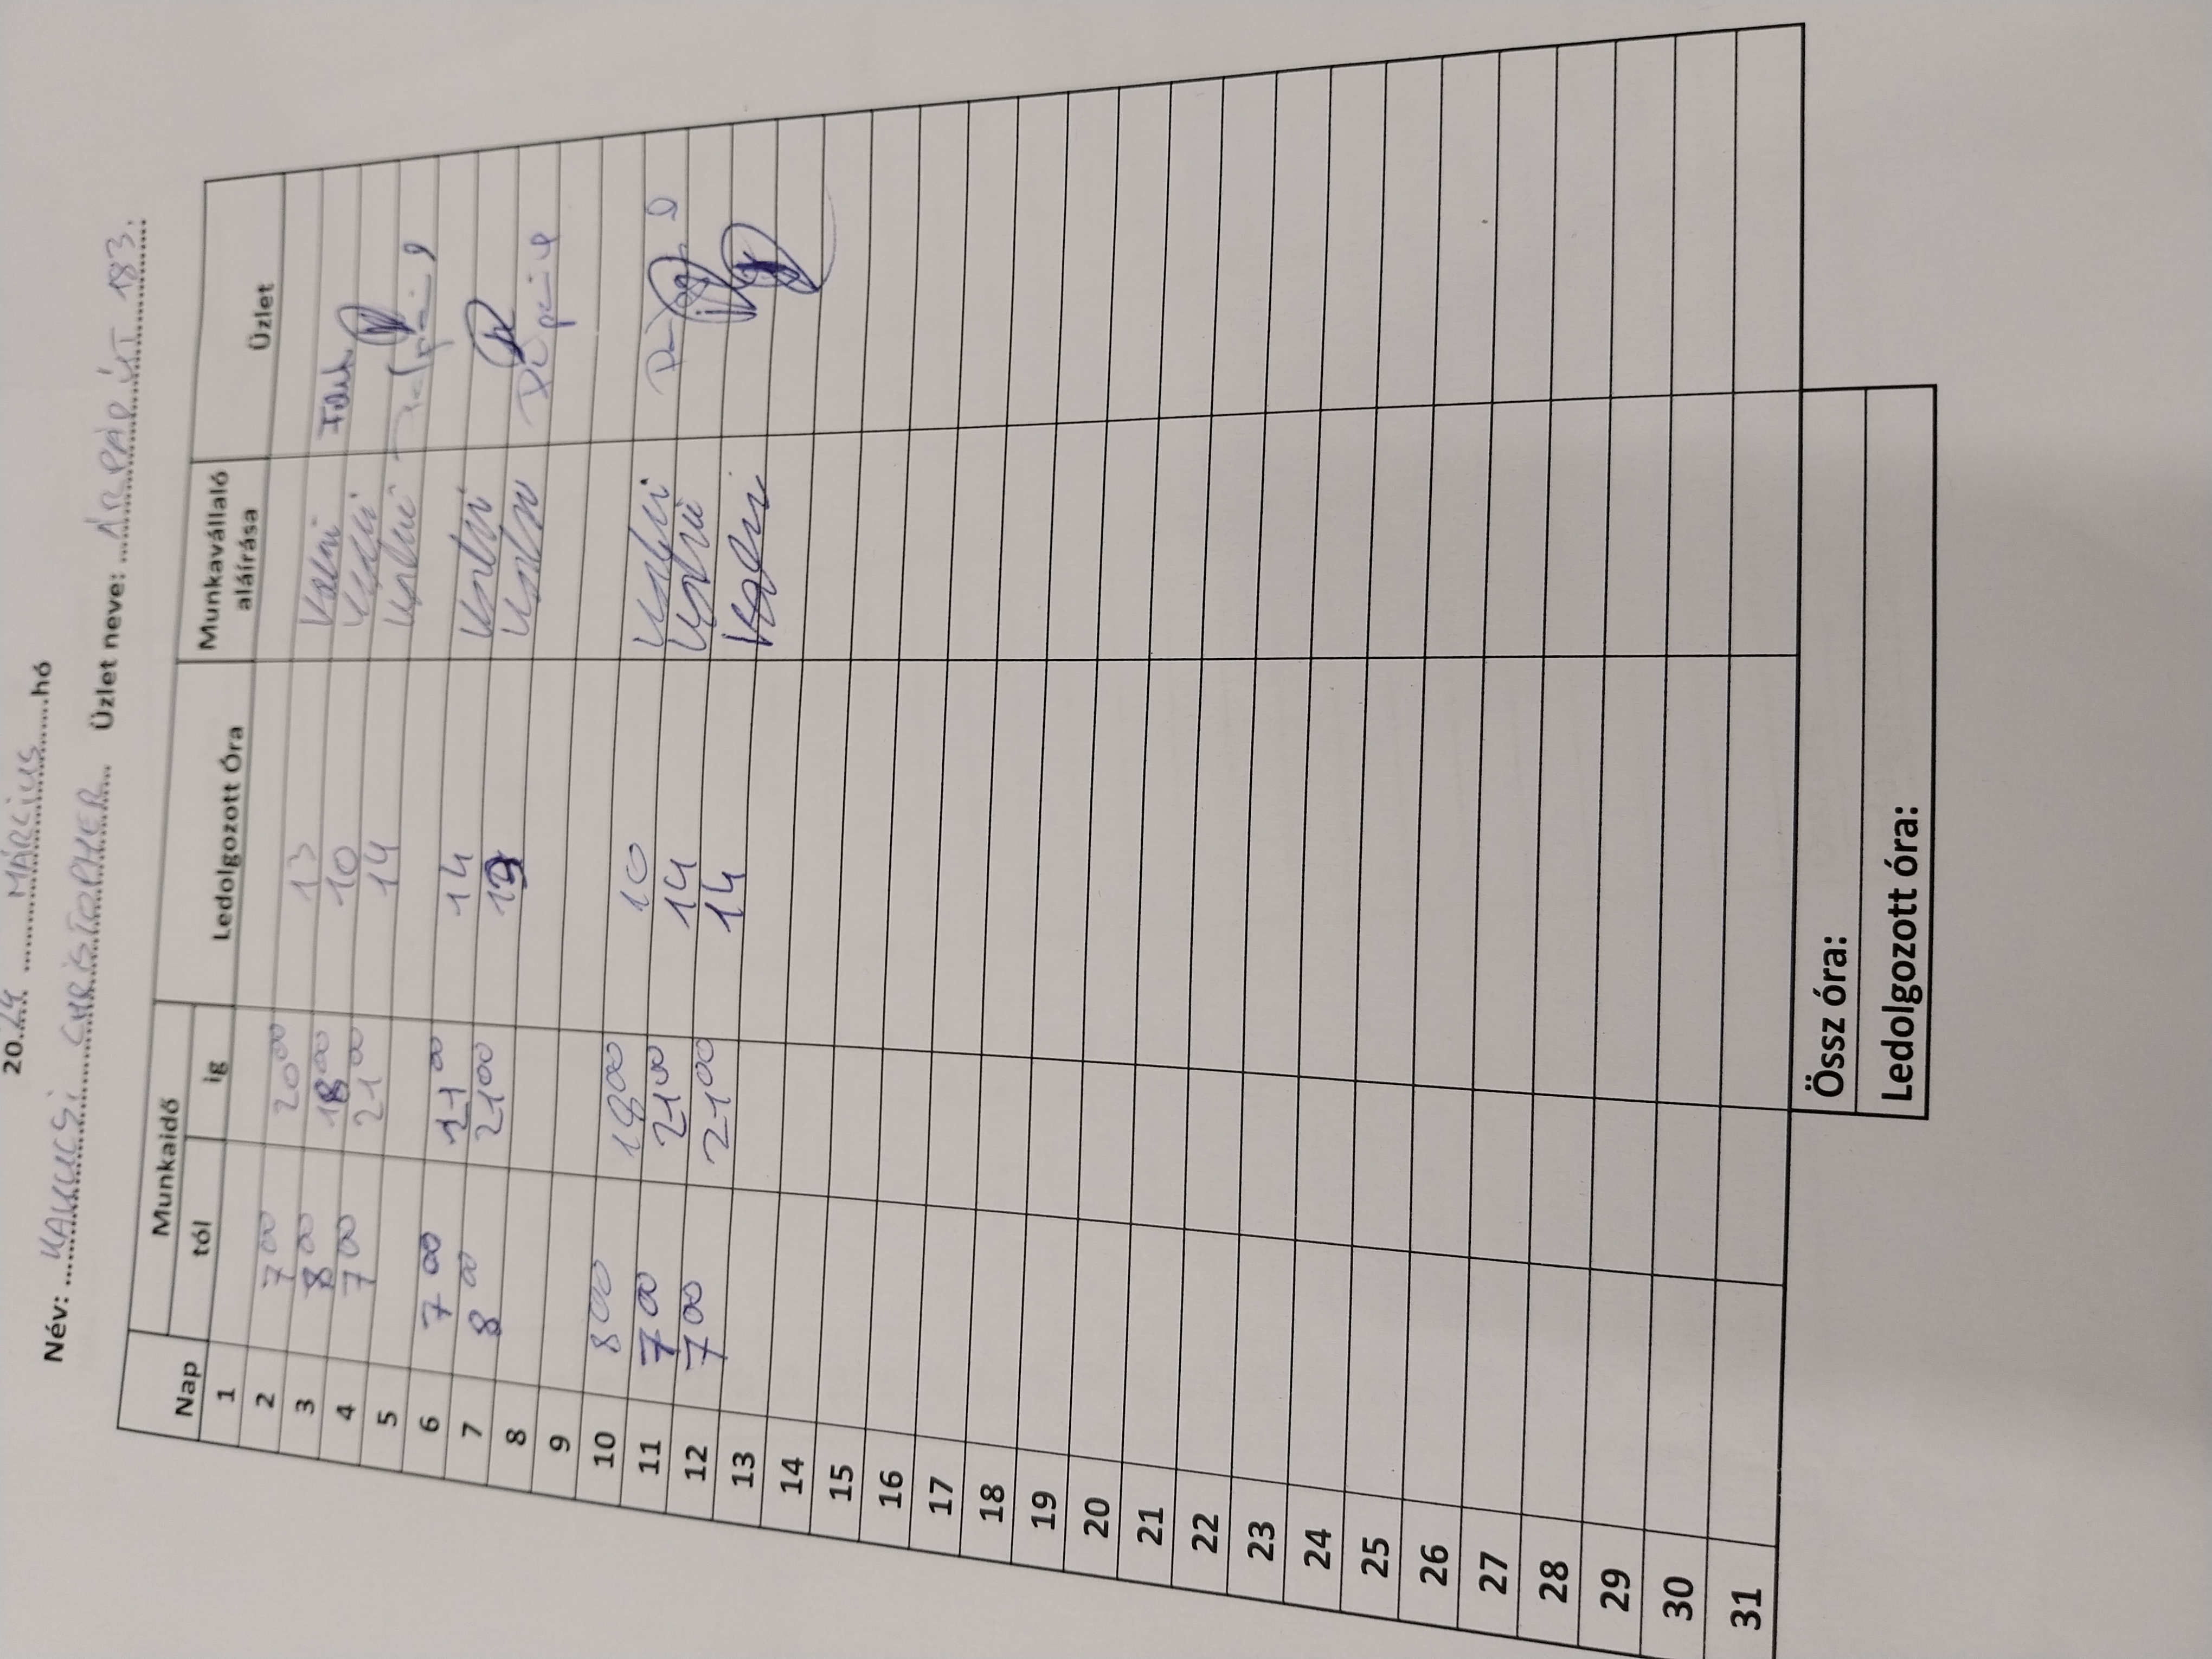 2024 MÁRCIUS hó
Név: KAKUCSI CHRISTOPHER Üzlet neve: ÁRPÁD ÚT 183.
Nap Munkaidő Ledolgozott Óra Munkavállaló aláírása Üzlet
tól ig
1
2 7 00 20 00 13
3 8 00 18 00 10
4 7 00 21 00 14
5
6 7 00 21 00 14
7 8 00 21 00 13
8
9
10 8 00 18 00 10
11 7 00 21 00 14
12 7 00 21 00 14
13
14
15
16
17
18
19
20
21
22
23
24
25
26
27
28
29
30
31
Össz óra:
Ledolgozott óra: